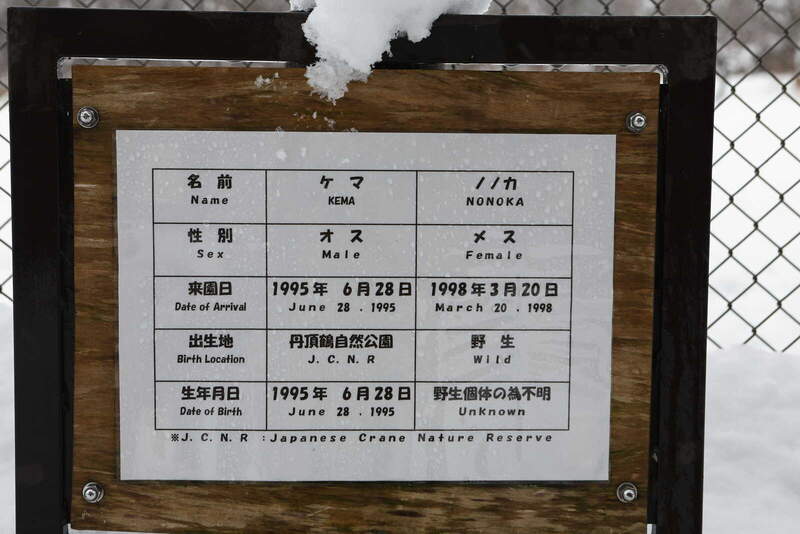 名前 ケマ ノノカ
Name KEMA NONOKA
性別 オス メス
Sex Male Female
来園日 1995年 6月28日 1998年3月20日
Date of Arrival June 28 . 1995 March 20 . 1998
出生地 丹頂鶴自然公園 野生
Birth Location J.C.N.R Wild
生年月日 1995年 6月28日 野生個体の為不明
Date of Birth June 28 . 1995 UnKnown
※J.C.N.R :Japanese Crane Nature Reserve